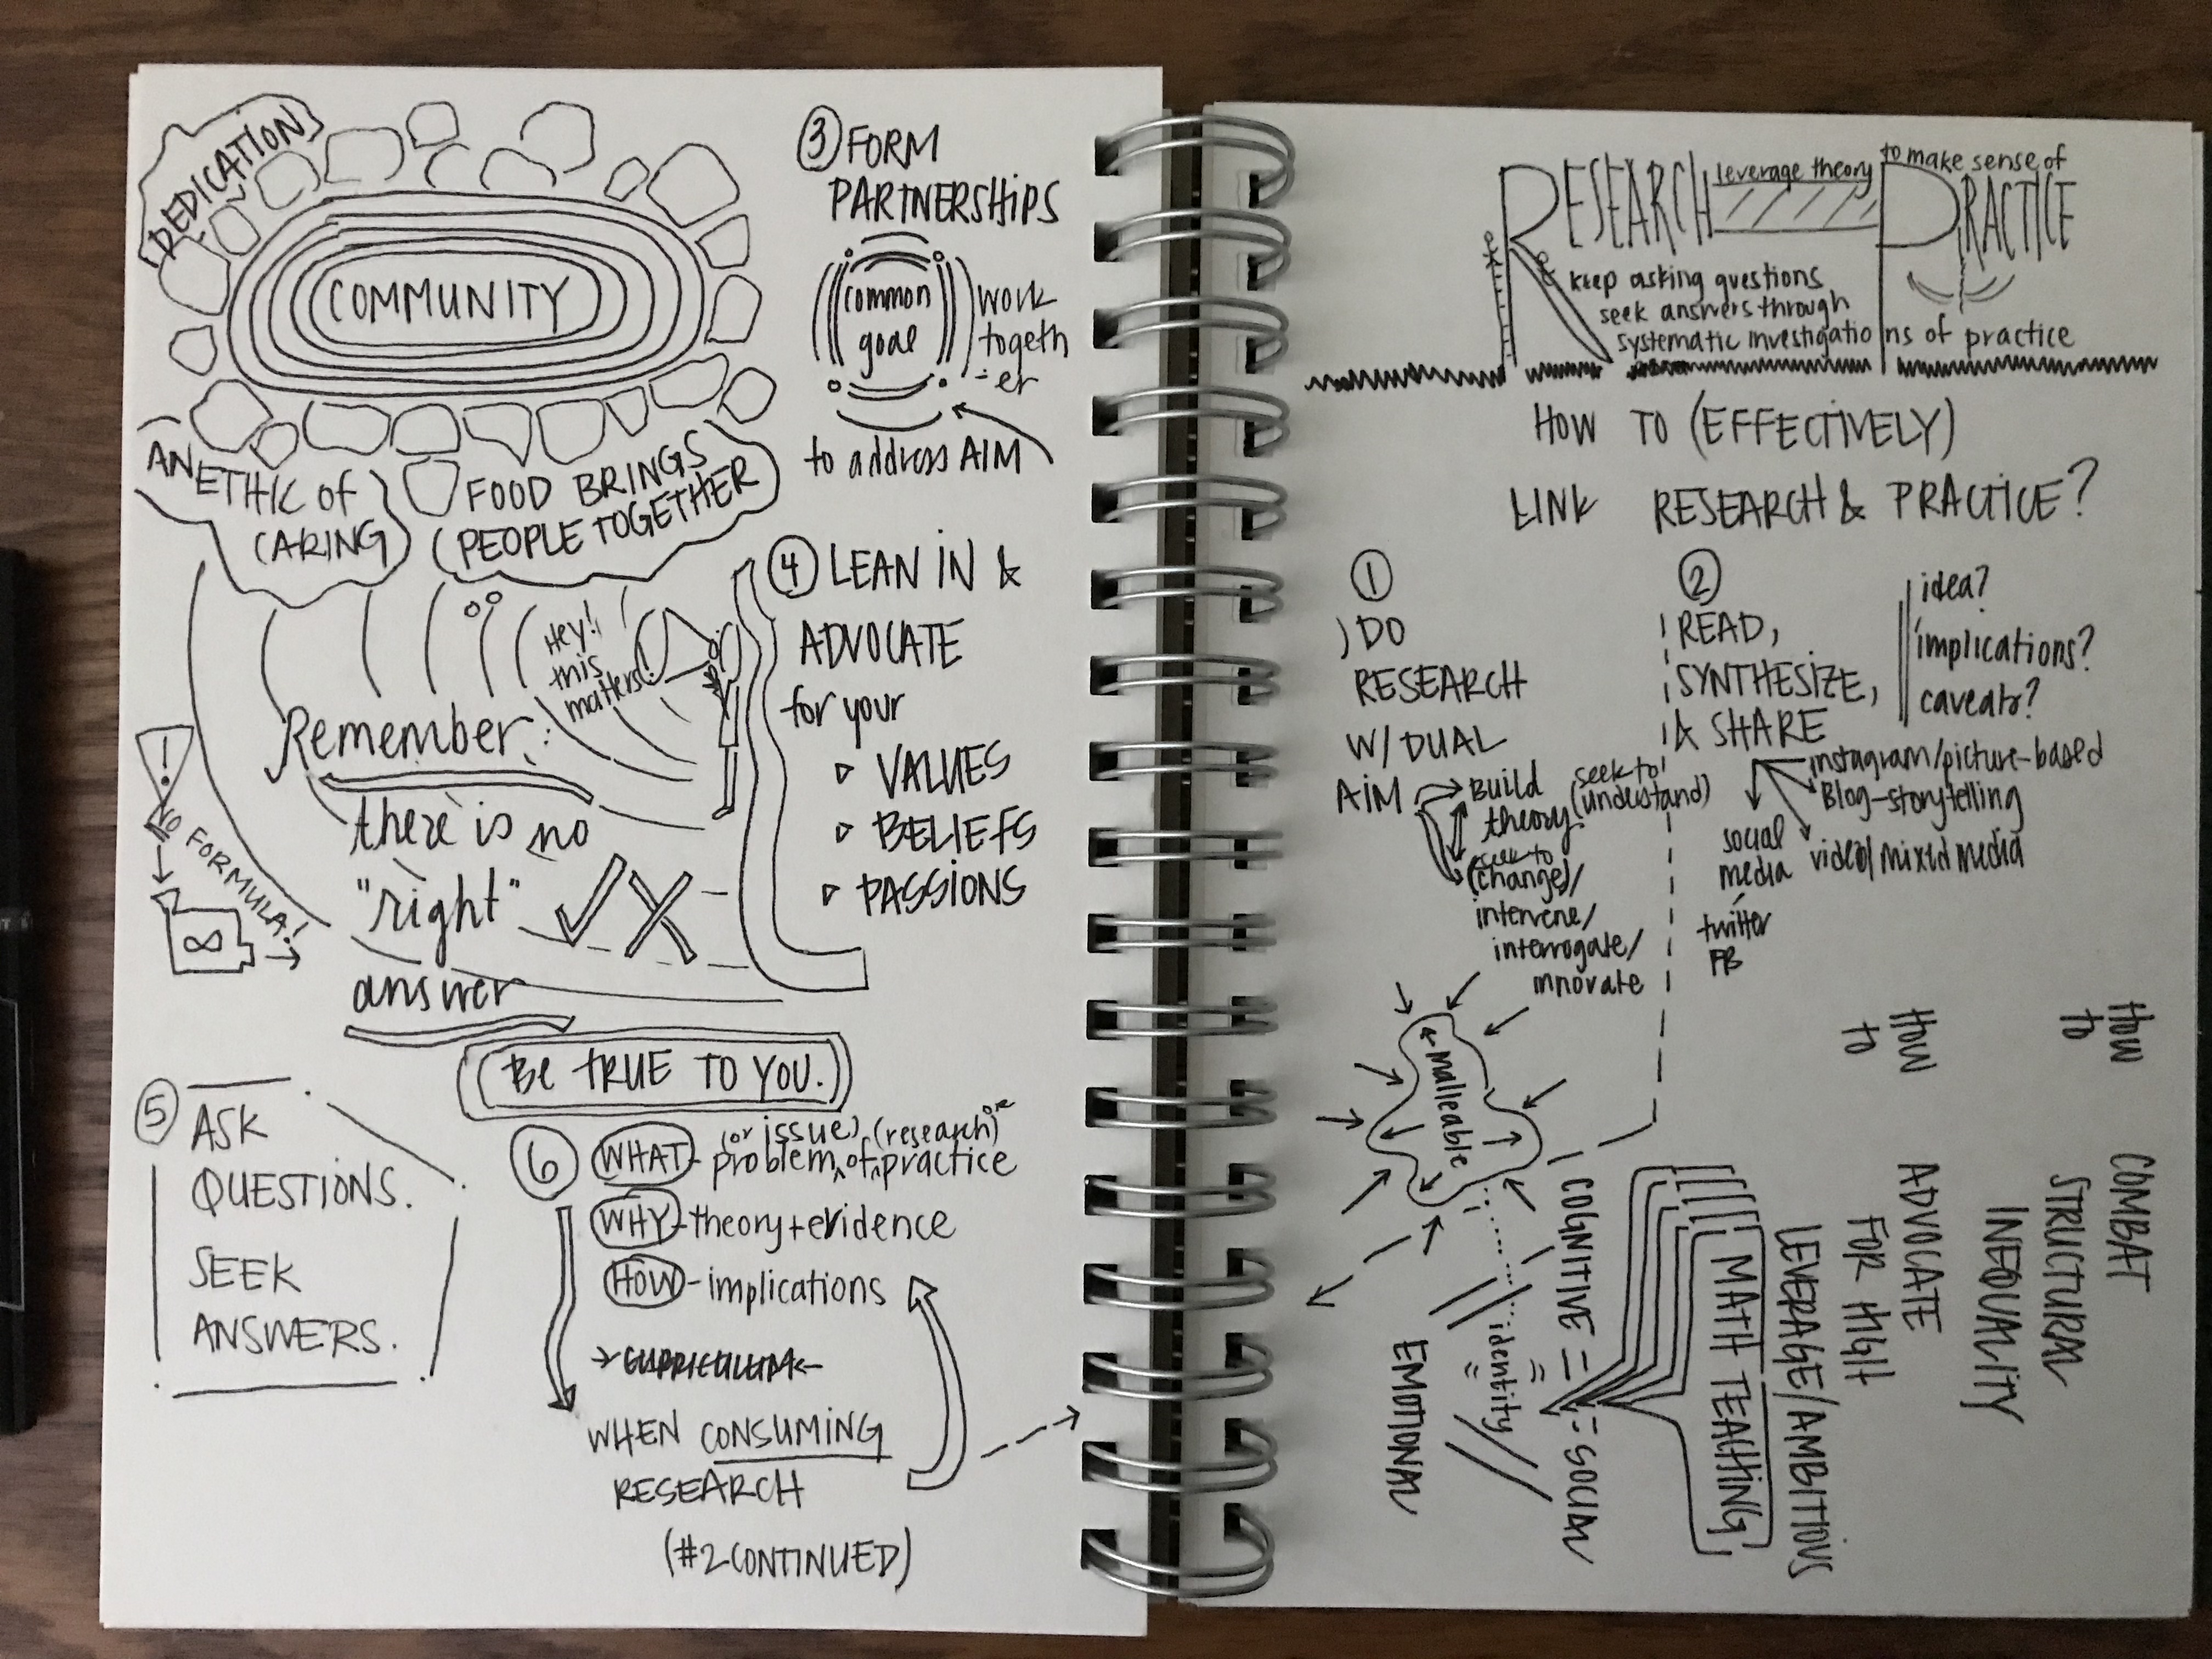 DEDICATION
COMMUNITY
AN ETHIC OF
CARING
FOOD BRINGS
PEOPLE TOGETHER
③ FORM
PARTNERSHIPS
common
goal
work
togeth
-er
to address AIM
④ LEAN IN &
ADVOCATE
for your
VALUES
BELIEFS
PASSIONS
Hey!
this
matters!
Remember:
there is no
"right"
answer
!
NO FORMULA!
∞
(BE TRUE TO YOU.)
⑤ ASK
QUESTIONS.
SEEK
ANSWERS.
⑥ WHAT - problem (or issue) of (research) practice
WHY - theory + evidence
HOW - implications
WHEN CONSUMING
RESEARCH
(#2 CONTINUED)
RESEARCH leverage theory to make sense of PRACTICE
keep asking questions
seek answers through
systematic investigations of practice
HOW TO (EFFECTIVELY)
LINK RESEARCH & PRACTICE?
①
DO
RESEARCH
W/ DUAL
AIM
Build
theory
(seek to
understand)
(seek to
change)/
intervene/
interrogate/
innovate
②
READ,
SYNTHESIZE,
& SHARE
idea?
implications?
caveats?
instagram/picture-based
Blog-storytelling
video/mixed media
social
media
twitter
FB
malleable
COGNITIVE = SOCIAL
identity
EMOTIONAL
MATH TEACHING
HOW TO
ADVOCATE
FOR HIGH
LEVERAGE/AMBITIOUS
HOW TO
COMBAT
STRUCTURAL
INEQUALITY